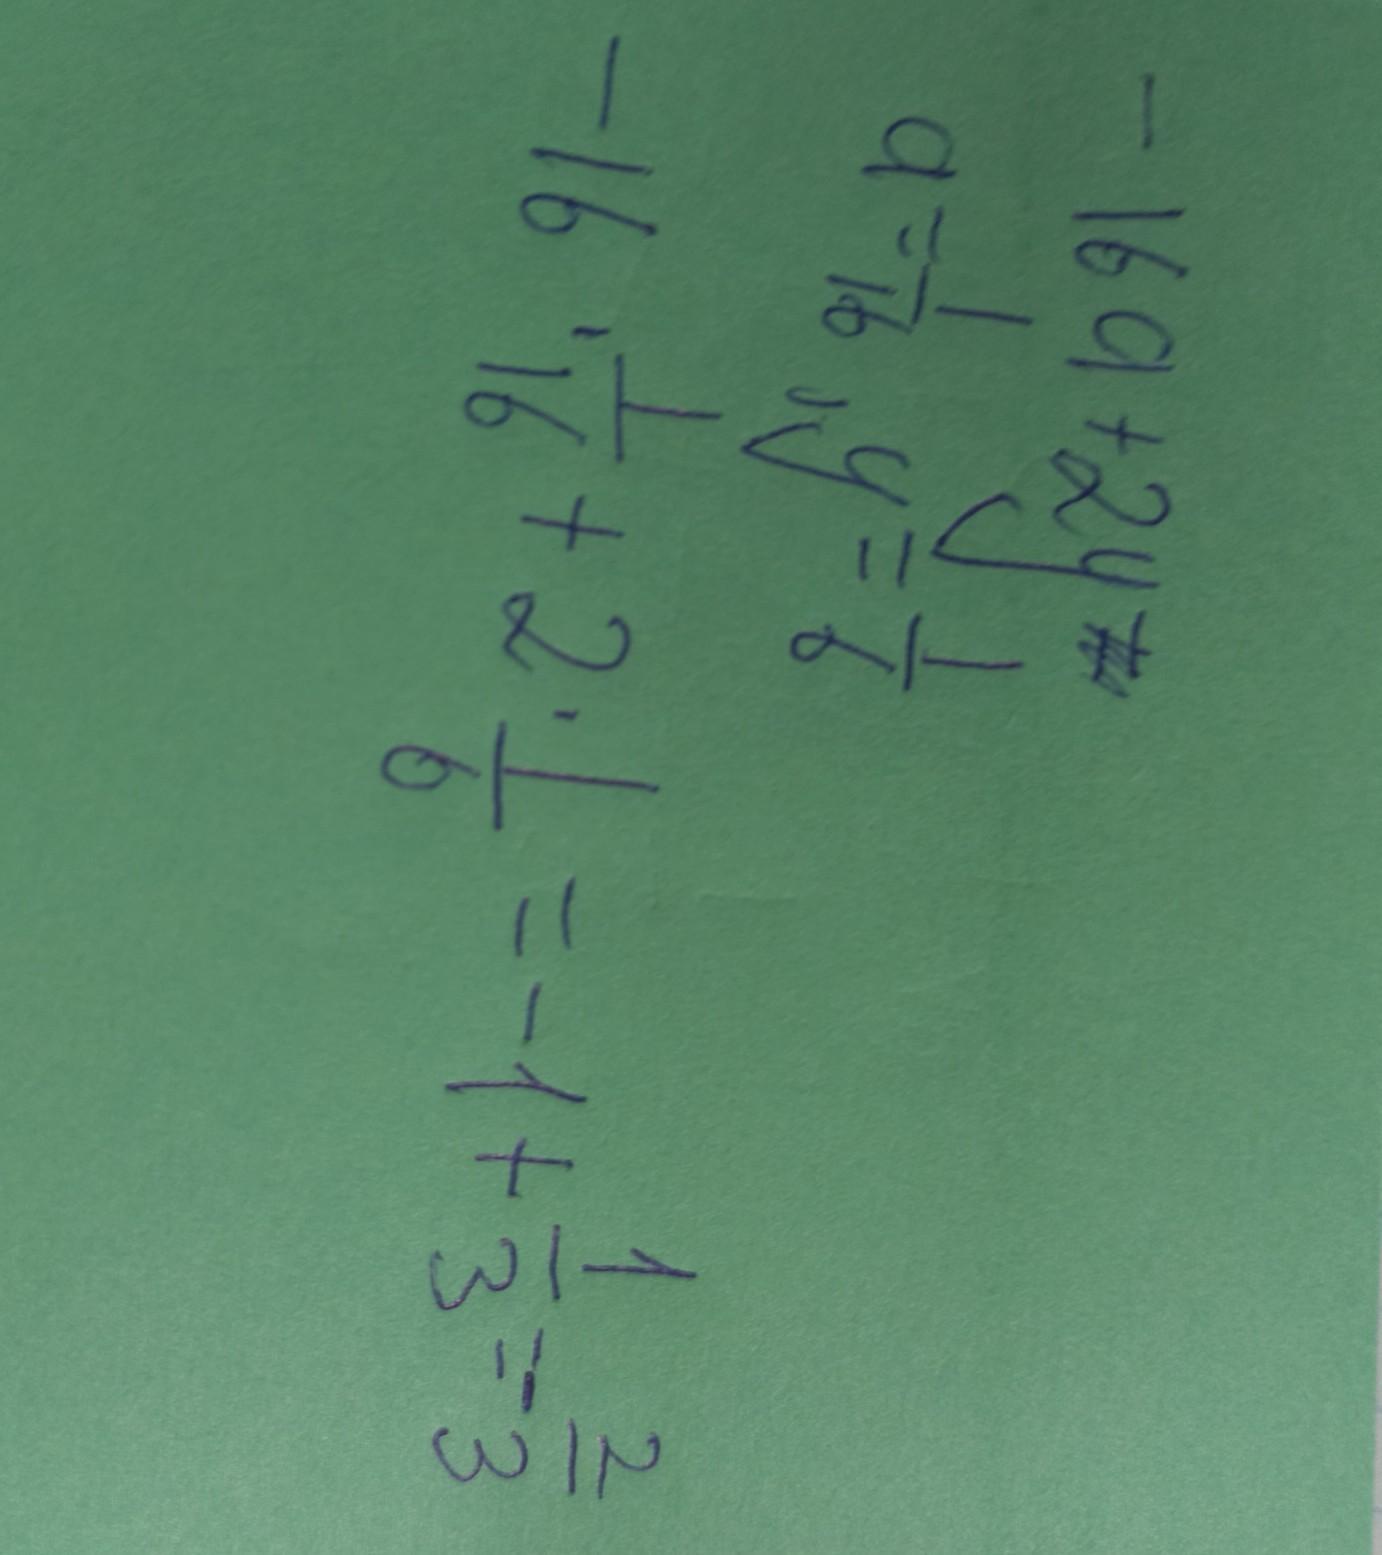 -16a+2y
a=1/16, y=1/6
-16·1/16+2·1/6=-1+1/3=-2/3